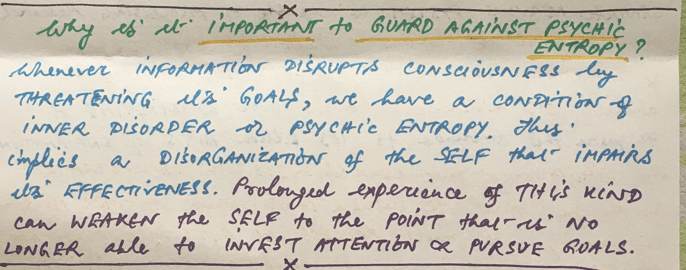 Why is it IMPORTANT to GUARD AGAINST PSYCHIC
ENTROPY?
Whenever INFORMATION DISRUPTS CONSCIOUSNESS by
THREATENING its GOALS, we have a CONDITION of
INNER DISORDER or PSYCHIC ENTROPY. This
implies a DISORGANIZATION of the SELF that IMPAIRS
its EFFECTIVENESS. Prolonged experience of THIS KIND
can WEAKEN the SELF to the POINT that is NO
LONGER able to INVEST ATTENTION OR PURSUE GOALS.